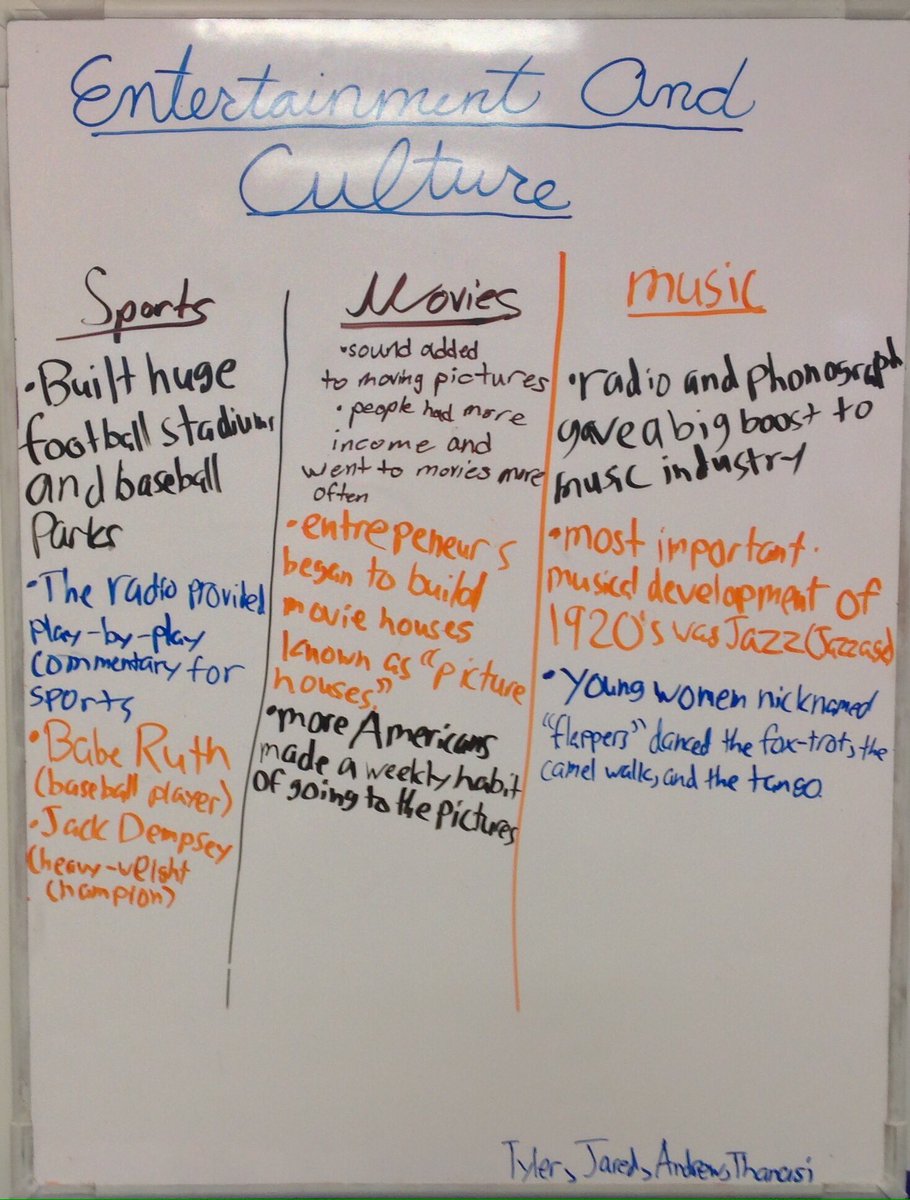 Entertainment And
Culture
Sports
•Built huge
football stadiums
and baseball
Parks
•The radio provided
play-by-play
commentary for
sports
•Babe Ruth
(baseball player)
•Jack Dempsey
(heavy-weight
champion)
Movies
•sound added
to moving pictures
•people had more
income and
went to movies more
often
•entrepeneurs
began to build
movie houses
known as "picture
houses."
•more Americans
made a weekly habit
of going to the pictures
music
•radio and phonograph
gave a big boost to
music industry
•most important
musical development of
1920's was Jazz (Jazz age)
•Young women nicknamed
"flappers" danced the fox-trot, the
camel walk, and the tango.
Tyler, Jared, Andrew, Thanasi